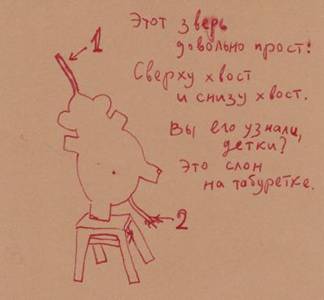 Этот зверь
довольно прост!
Сверху хвост
и снизу хвост.
Вы его узнали,
детки?
Это слон
на табуретке.
1
2